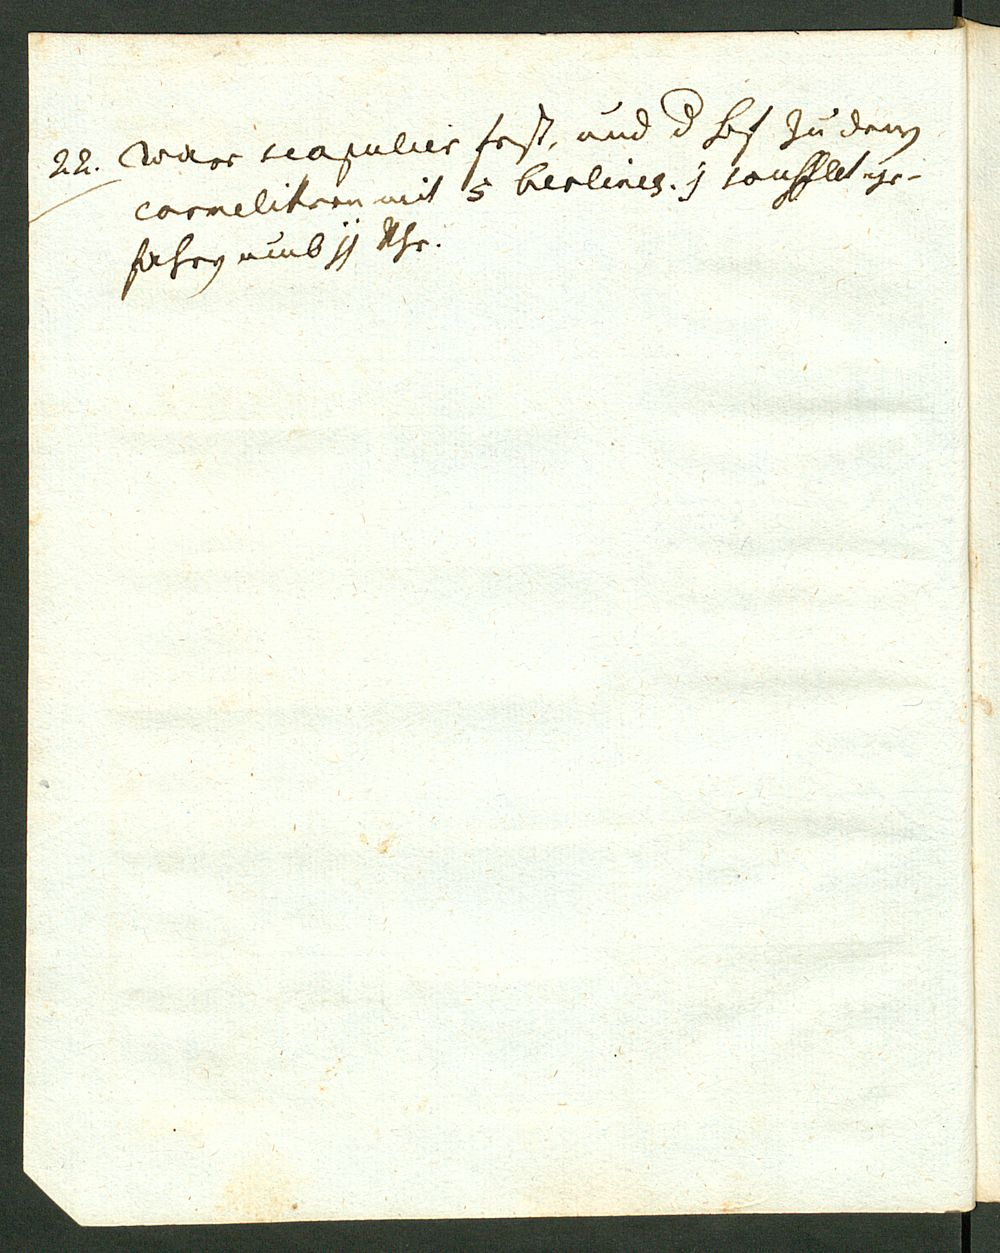 22. ware scapulier fest, und d hof zu denen
carmelitern mit 5 berlines. j soufflet ge-
fahren umb jj Uhr.